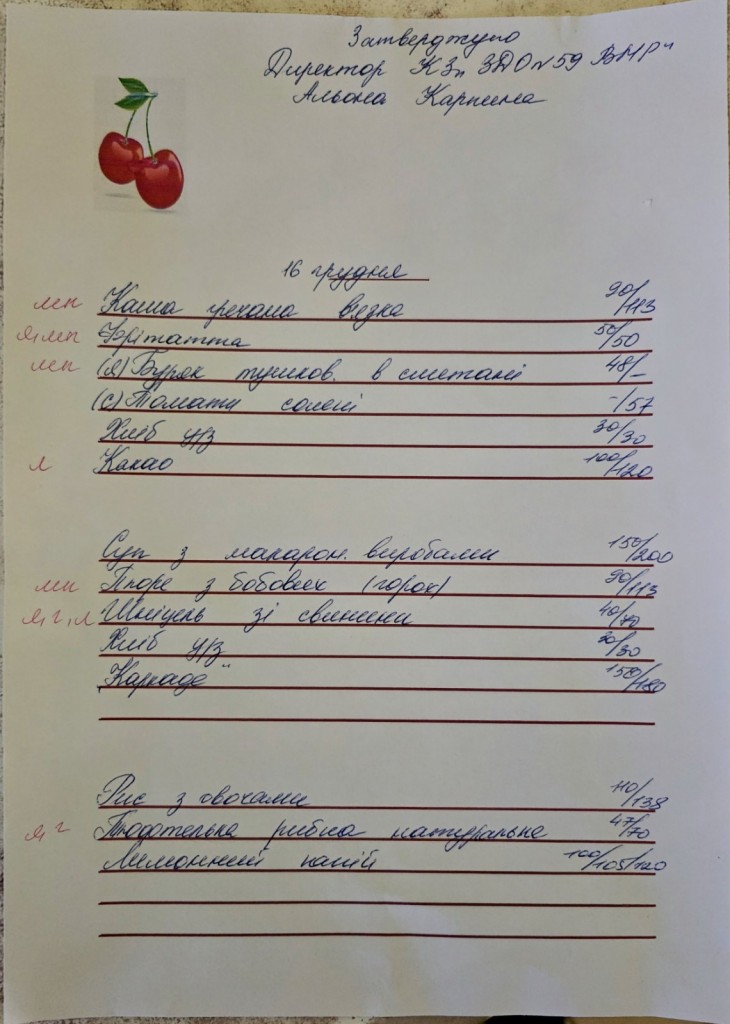 Затверджую
Директор КЗ „ЗДО №59 ВМР"
Альона Карпина
16 грудня
мп Каша гречана в'язка 90/113
я, мп Фрітатта 50/50
мп (я) Буряк тушков. в сметані 48/–
(с) Томати солені –/57
Хліб у/з 30/30
л Какао 100/120
Суп з макарон. виробами 150/200
мп Пюре з бобових (горох) 90/113
я, г, л Шніцель зі свинини 40/70
Хліб у/з 30/30
„Каркаде" 150/180
Рис з овочами 110/138
я, г Тюфтелька рибна натуральна 47/70
Лимонний напій 100/105/120